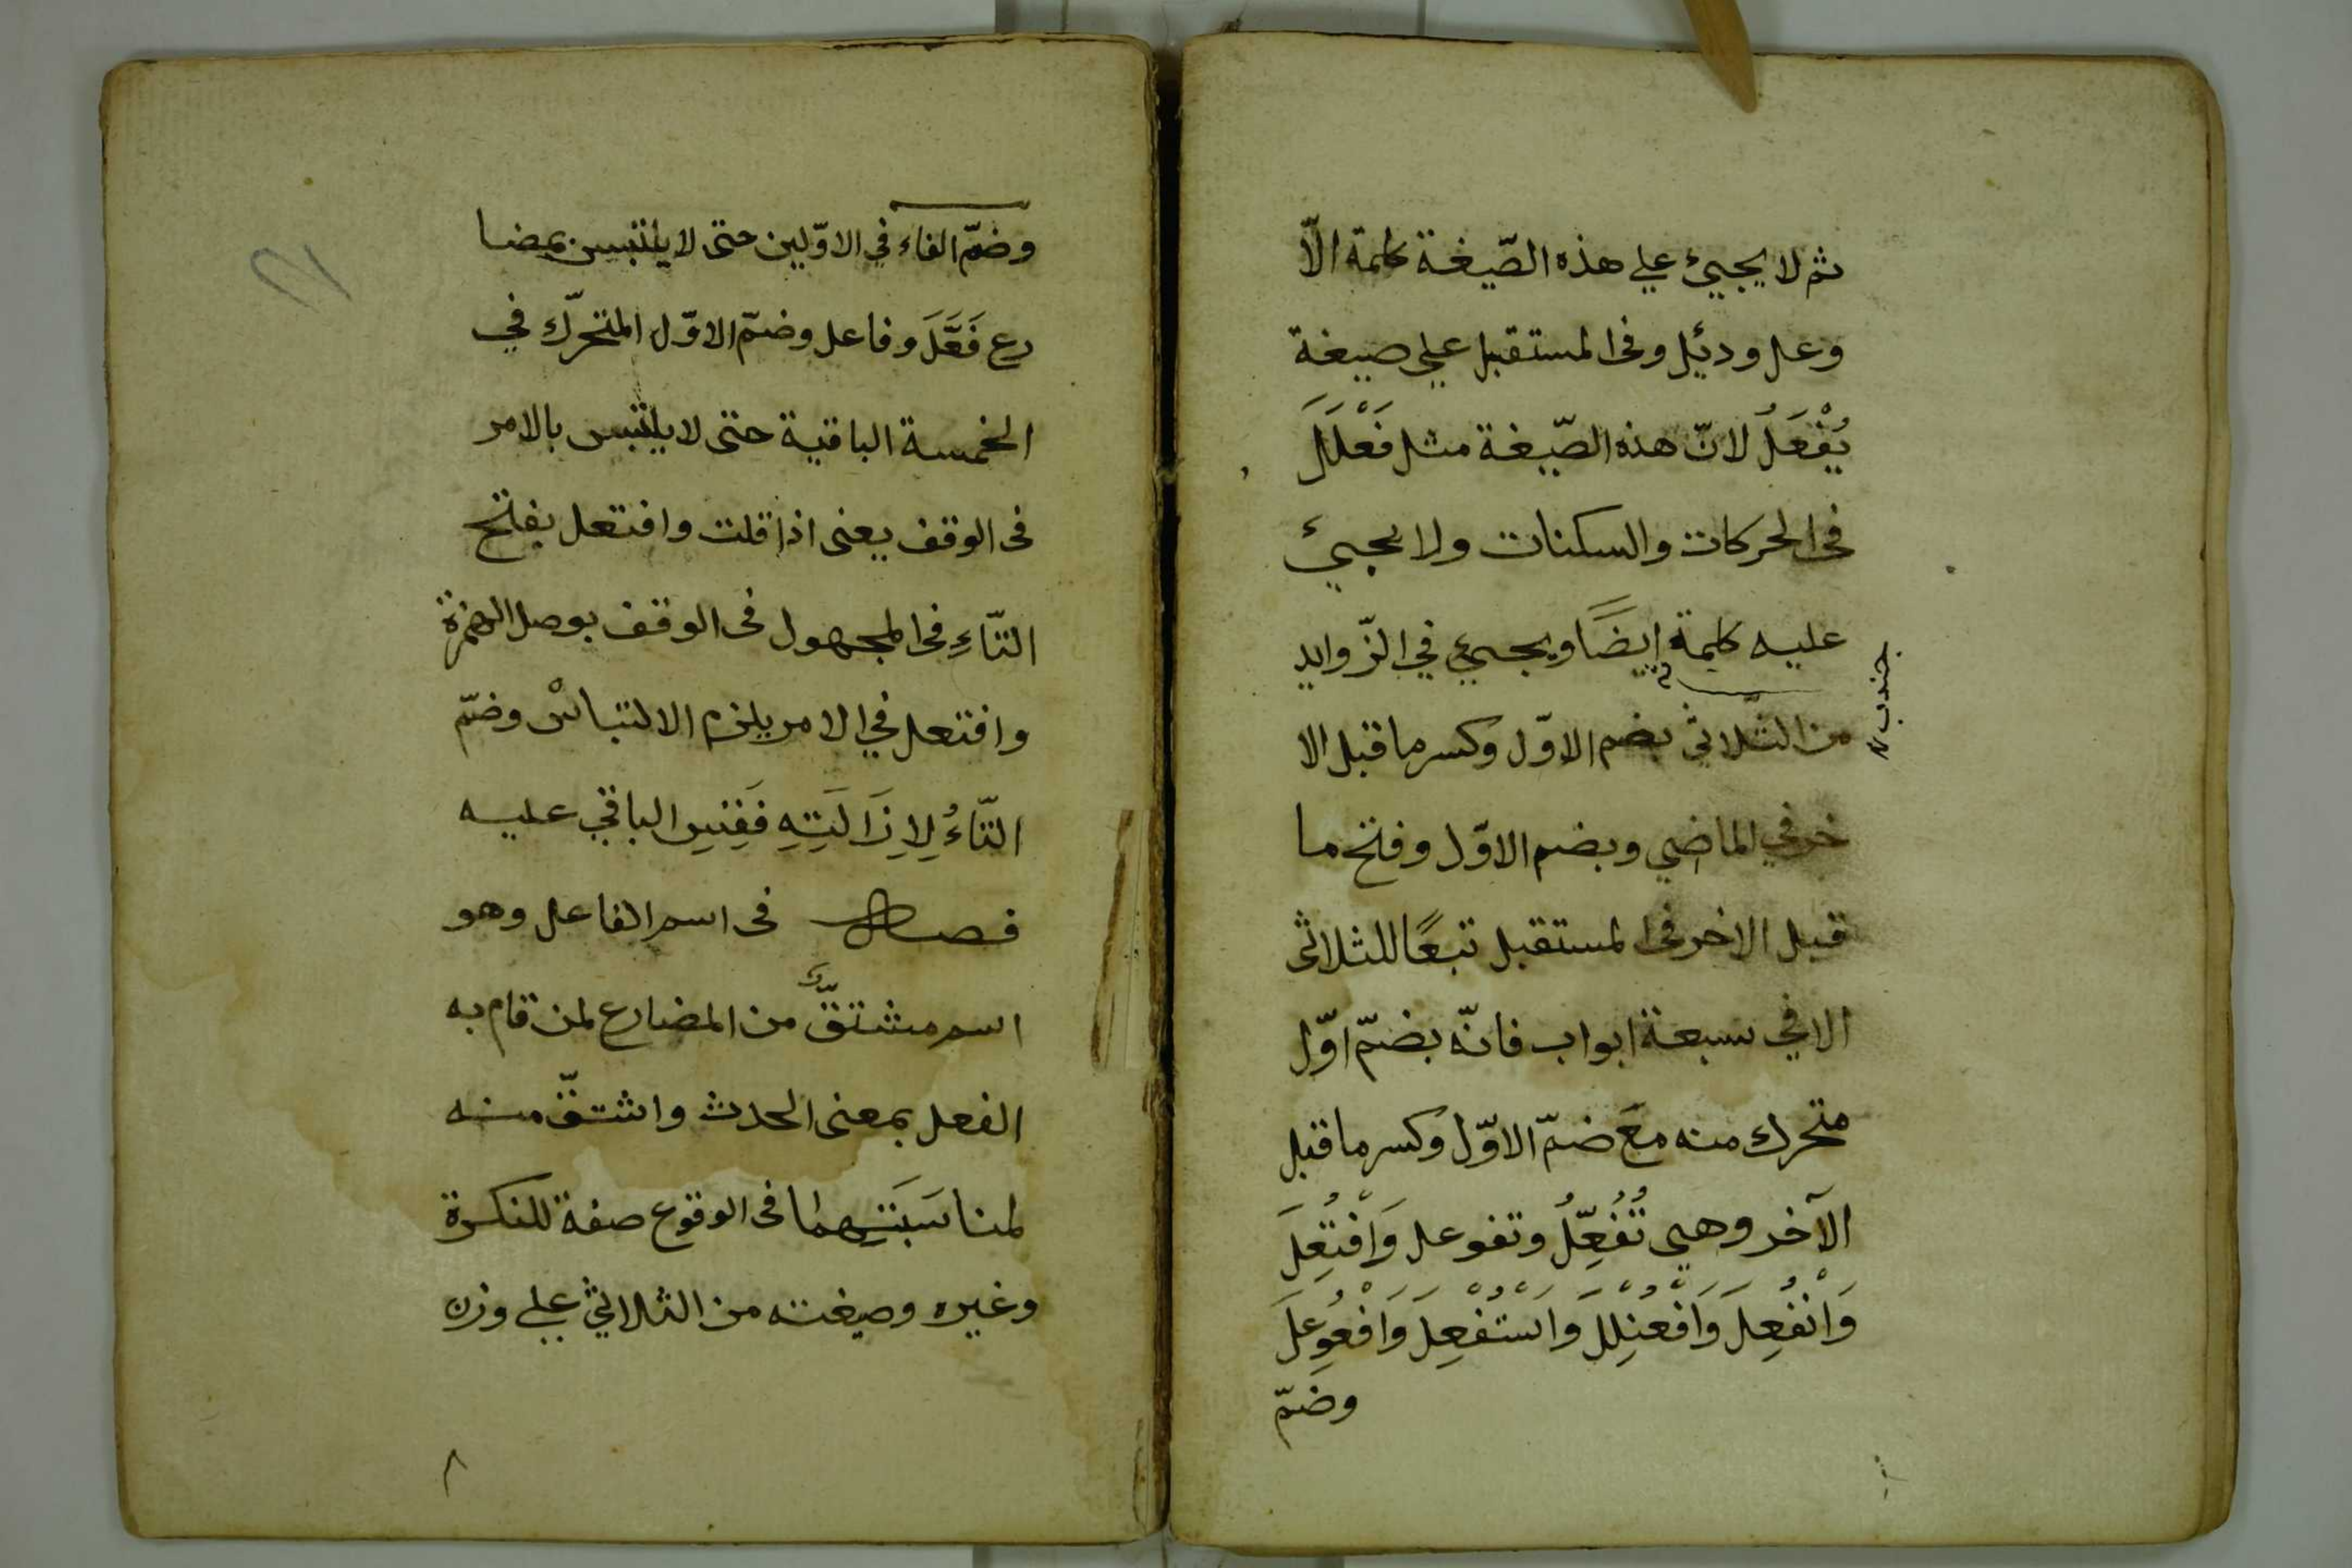 ثم لا يجيئ علي هذه الصّيغة كلمة الّا
وعل ودئل وفى المستقبل علي صيغة
يُفْعَلُ لانّ هذه الصّيغة مثل فَعْلَلَ
فى الحركات والسكنات ولا يجيئ
عليه كلمة ايضًا ويجيئ في الزّوايد
جندب
من الثّلاثي بضم الاوّل وكسر ما قبل الا
خر في الماضي وبضم الاوّل وفتح ما
قبل الاخر فى المستقبل تبعًا للثلاثى
الا في سبعة ابواب فانّه بضمّ اوّل
متحرك منه معَ ضمّ الاوّل وكسر ما قبل
الآخر وهي تُفُعِّلُ وتفوعل وَافْتُعِلَ
وَانْفُعِلَ وَافْعُنْلِلَ وَاسْتُفْعِلَ وَافْعُوعِلَ
وضمّ
وضمّ الفاء في الاوّلين حتى لا يلتبس بمضا
رع فَعَّلَ وفاعل وضمّ الاوّل المتحرّك في
الخمسة الباقية حتى لا يلتبس بالامر
فى الوقف يعنى اذا قلت وافتعل بفتح
التّاءِ فى المجهول فى الوقف بوصل الهمزة
وافتعل في الامر يلزم الالتباس وضمّ
التّاءُ لِاِزَالَتِهِ فَقِسِ الباقي عليه
فصل فى اسم الفاعل وهو
اسم مشتقٌّ من المضارع لمن قام به
الفعل بمعنى الحدث واشتقّ منه
لمناسَبَتِهما فى الوقوع صفة للنكرة
وغيره وصيغته من الثلاثي علي وزن
٨